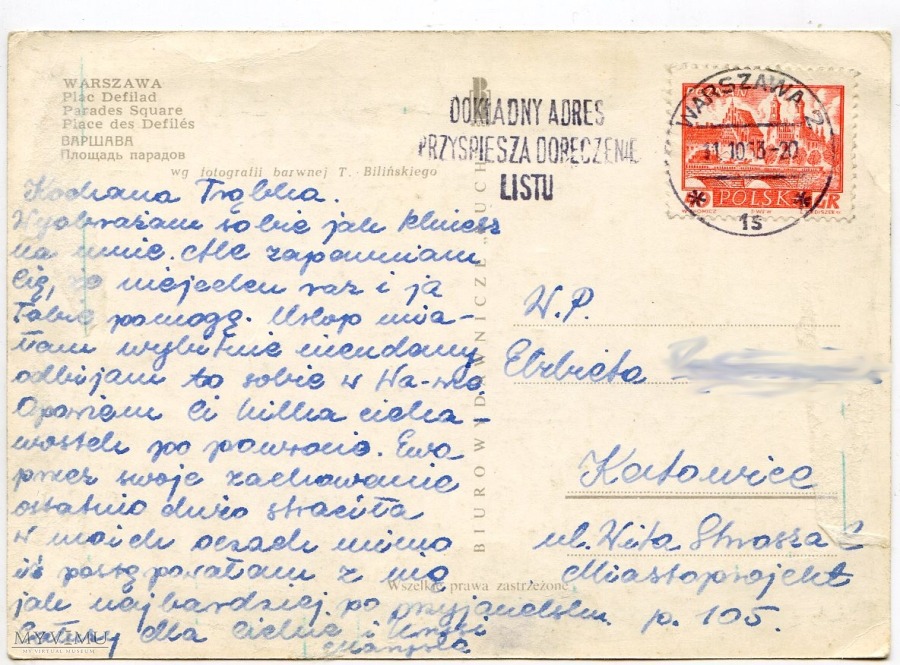 WARSZAWA
Plac Defilad
Parades Square
Place des Defilés
ВАРШАВА
Площадь парадов
wg fotografii barwnej T. Bilińskiego
DOKŁADNY ADRES
PRZYSPIESZA DORĘCZENIE
LISTU
WARSZAWA 2
POLSKA
BIURO WYDAWNICZE „RUCH”
Kochana
Wyobrażam sobie jak klniesz
na mnie. Ale zapewniam
Cię, że niejeden raz i ja
Tobie pomogę. Urlop mia-
łam wybitnie nieudany
odbijam to sobie w Wa-wie
Opowiem Ci kilka cieka
wostek po powrocie. Ewa
przez swoje zachowanie
ostatnio dużo straciła
w moich oczach mimo
iż postępowałam z nią
jak najbardziej po przyjacielsku.
dla Ciebie i
W.P.
Elżbieta
Katowice
ul. Wita Stwosza 2
Miastoprojekt
p. 105.
Wszelkie prawa zastrzeżone
MYVIMU
MY VIRTUAL MUSEUM